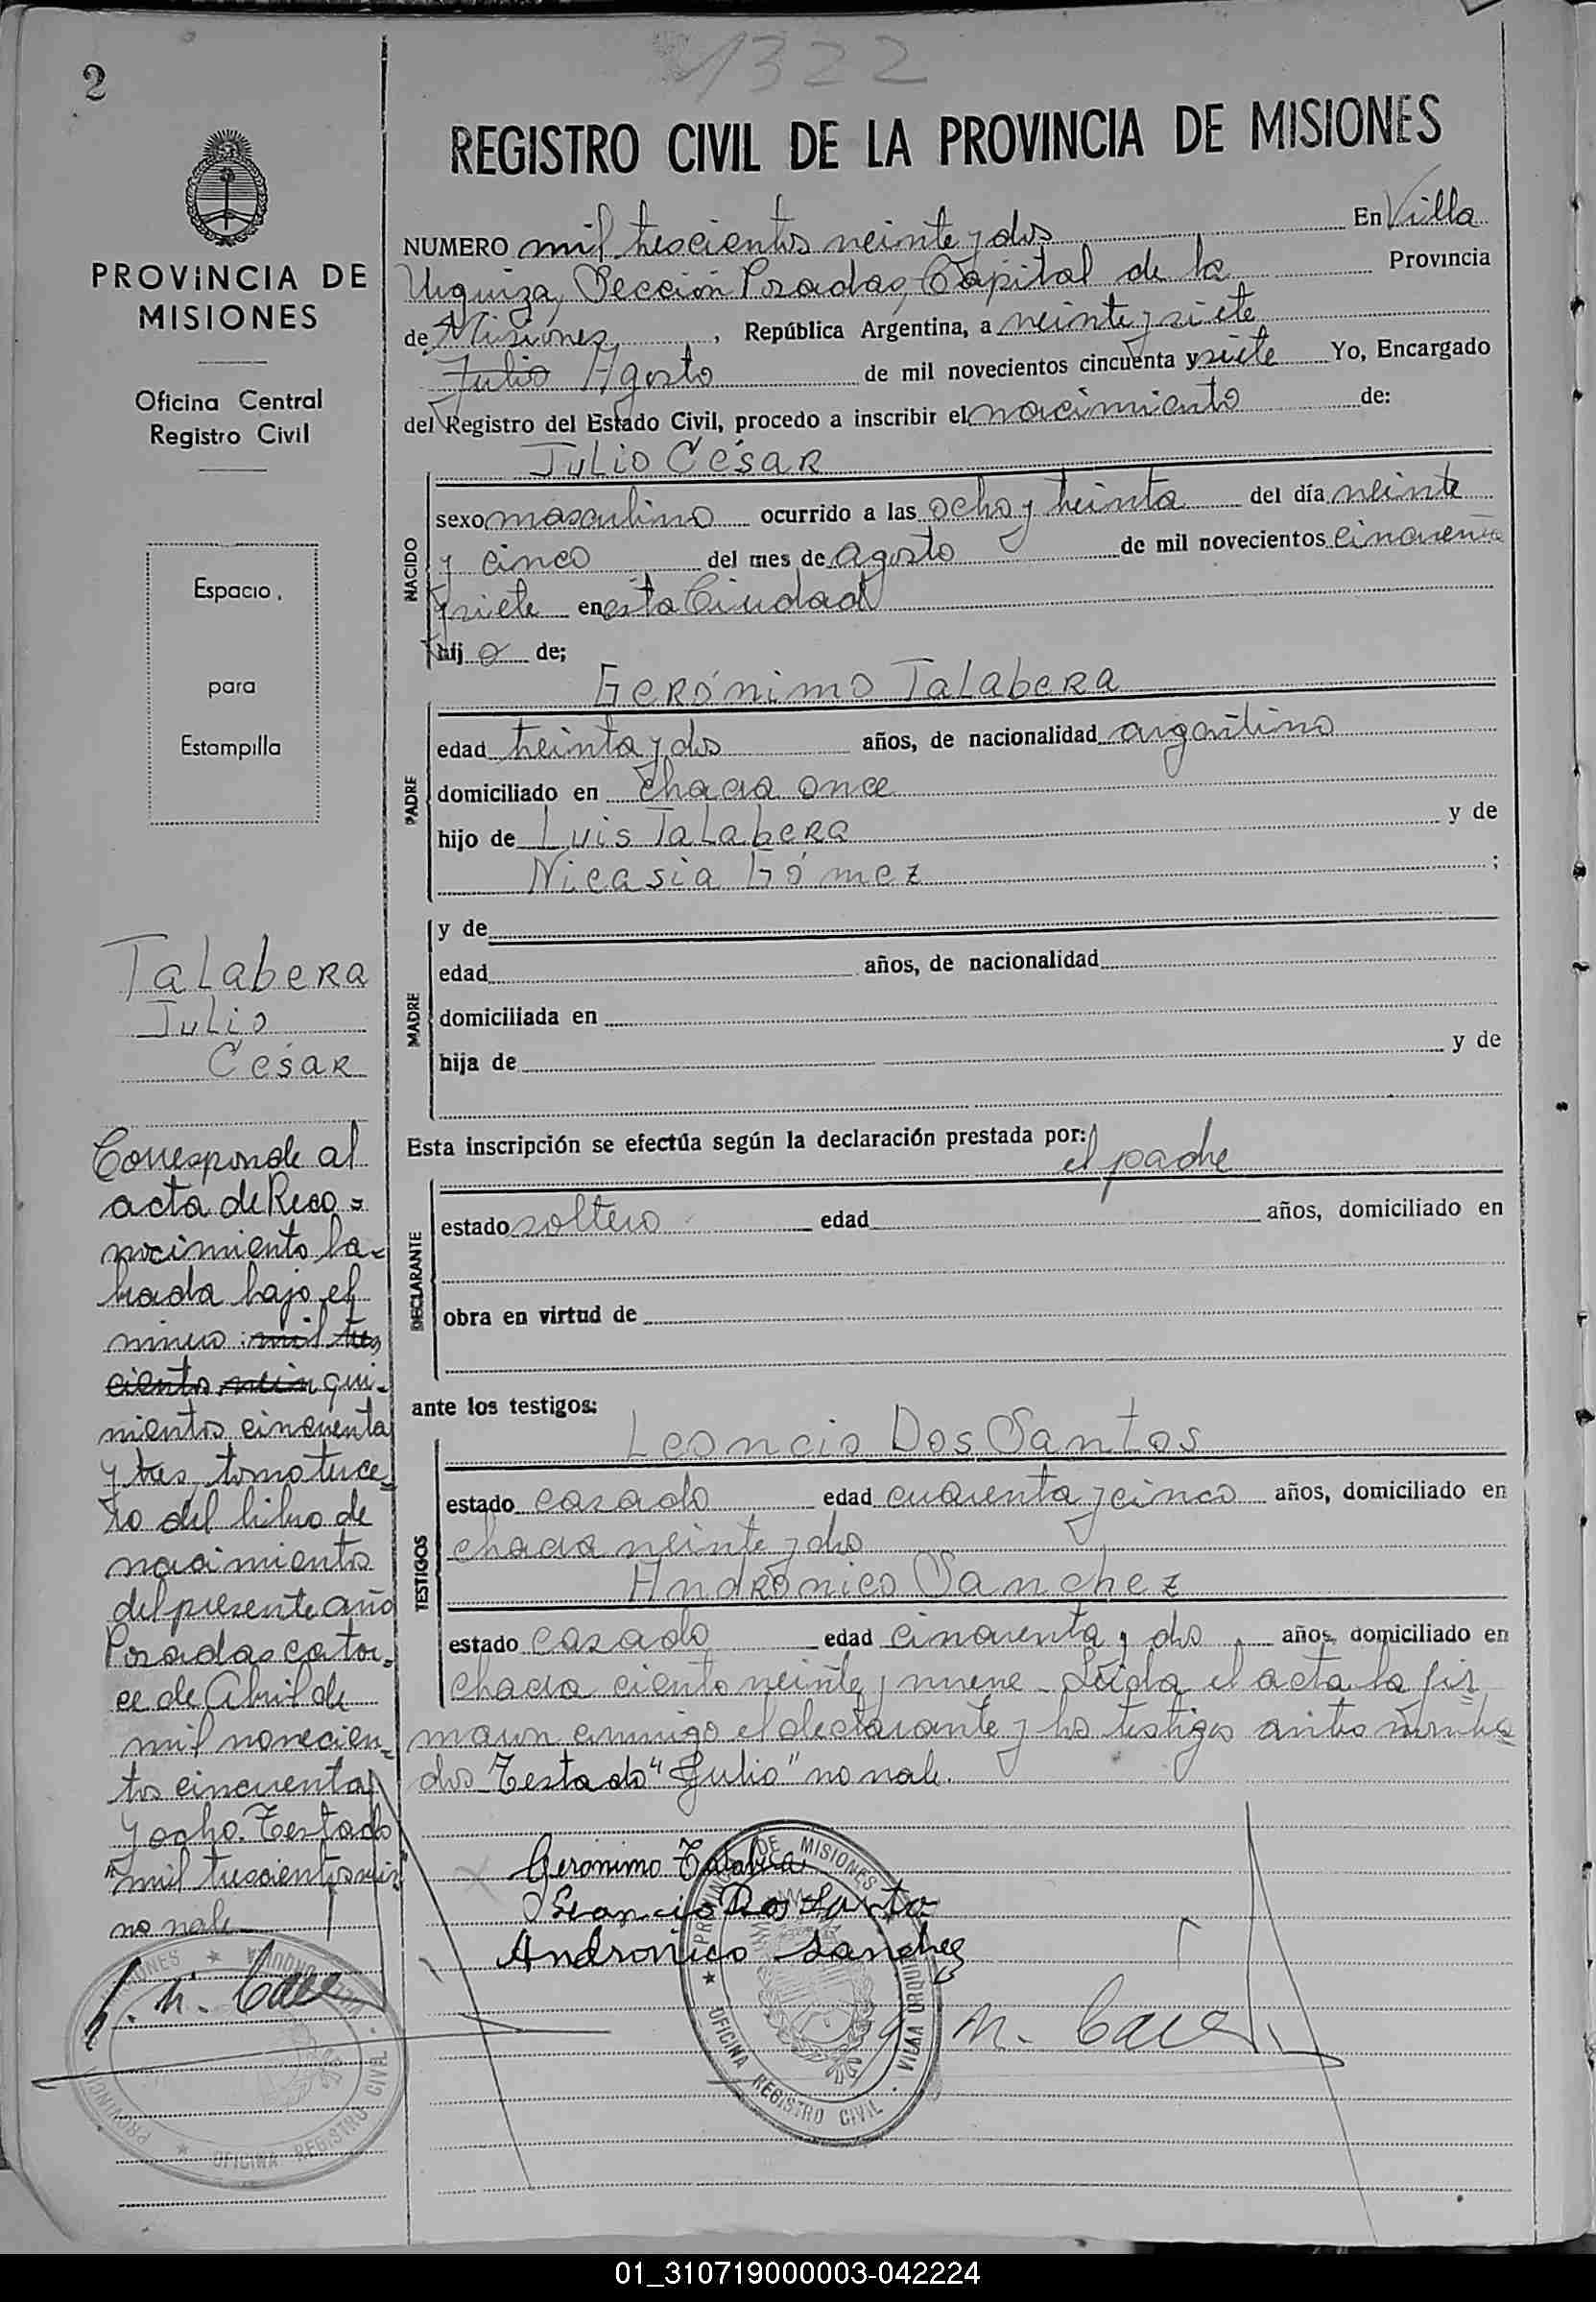 2
1322
PROVINCIA DE
MISIONES
Oficina Central
Registro Civil
Espacio
para
Estampilla
Talabera
Julio
César
Corresponde al
acta de Reco=
nocimiento la=
brada bajo el
número: mil tres
cientos vein qui-
nientos cincuenta
y tres, tomo terce=
ro del libro de
nacimientos
del presente año
Posadas cator=
ce de Abril de
mil novecien=
tos cincuenta
y ocho. Testado
"mil trescientos vein"
no vale.
REGISTRO CIVIL DE LA PROVINCIA DE MISIONES
NUMERO mil trescientos veinte y dos En Villa
Urquiza, Sección Posadas, Capital de la Provincia
de Misiones, República Argentina, a veinte y siete
Julio Agosto de mil novecientos cincuenta y siete Yo, Encargado
del Registro del Estado Civil, procedo a inscribir el nacimiento de:
Julio César
NACIDO
sexo masculino ocurrido a las ocho y treinta del día veinte
y cinco del mes de agosto de mil novecientos cincuenta
y siete en esta Ciudad
hijo de;
Gerónimo Talabera
PADRE
edad treinta y dos años, de nacionalidad argentino
domiciliado en chacra once
hijo de Luis Talabera y de
Nicasia Gómez ;
MADRE
y de
edad años, de nacionalidad
domiciliada en
hija de y de
Esta inscripción se efectúa según la declaración prestada por:
el padre
DECLARANTE
estado soltero edad años, domiciliado en
obra en virtud de
ante los testigos:
Leoncio Dos Santos
TESTIGOS
estado casado edad cuarenta y cinco años, domiciliado en
chacra veinte y dos
Andrónico Sanchez
estado casado edad cincuenta y dos años, domiciliado en
chacra ciento veinte y nueve - Leída el acta la fir
maron conmigo el declarante y los testigos antes nombra
dos Testado "Julio" no vale.
Geronimo Talabera
Leoncio Dos Santo
Andronico Sanchez
PROVINCIA DE MISIONES
OFICINA REGISTRO CIVIL
VILLA URQUIZA
01_310719000003-042224